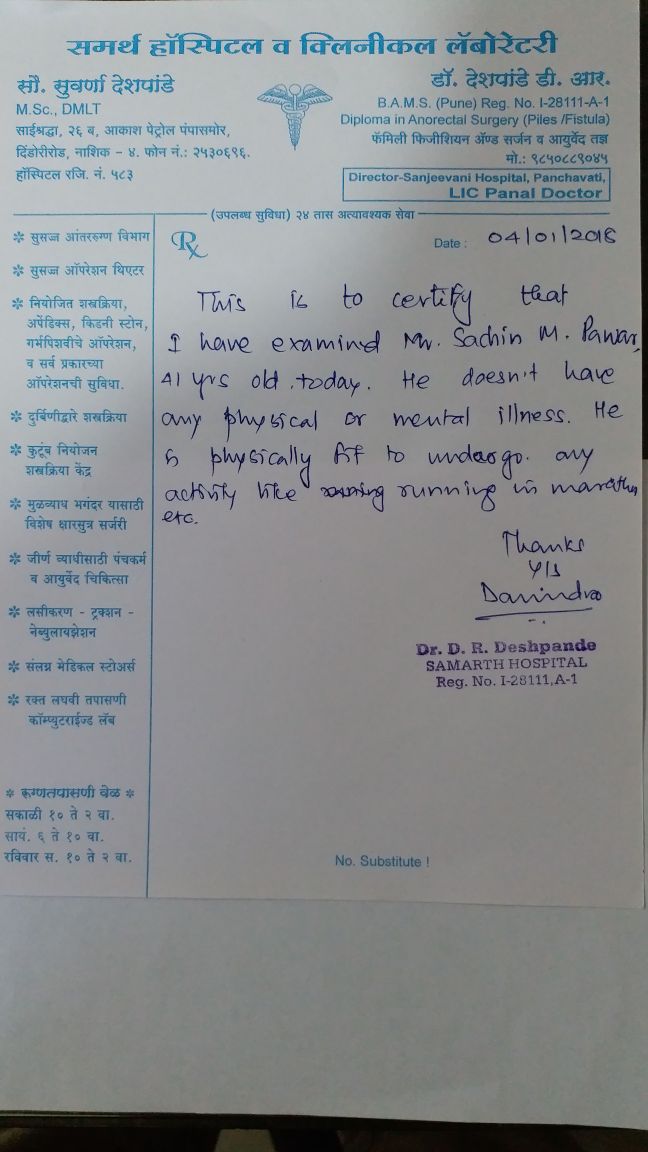 समर्थ हॉस्पिटल व क्लिनीकल लॅबोरेटरी
सौ. सुवर्णा देशपांडे
M.Sc., DMLT
साईश्रद्धा, २६ ब, आकाश पेट्रोल पंपासमोर,
दिंडोरीरोड, नाशिक - ४. फोन नं.: २५३०६९६.
हॉस्पिटल रजि. नं. ५८३
डॉ. देशपांडे डी. आर.
B.A.M.S. (Pune) Reg. No. I-28111-A-1
Diploma in Anorectal Surgery (Piles /Fistula)
फॅमिली फिजीशियन ॲण्ड सर्जन व आयुर्वेद तज्ञ
मो.: ९८५०८८९०४५
Director-Sanjeevani Hospital, Panchavati,
LIC Panal Doctor
(उपलब्ध सुविधा) २४ तास अत्यावश्यक सेवा
* सुसज्ज आंतररुग्ण विभाग
* सुसज्ज ऑपरेशन थिएटर
* नियोजित शस्त्रक्रिया,
अपेंडिक्स, किडनी स्टोन,
गर्भपिशवीचे ऑपरेशन,
व सर्व प्रकारच्या
ऑपरेशनची सुविधा.
* दुर्बिणीद्वारे शस्त्रक्रिया
* कुटूंब नियोजन
शस्त्रक्रिया केंद्र
* मुळव्याध भगंदर यासाठी
विशेष क्षारसुत्र सर्जरी
* जीर्ण व्याधीसाठी पंचकर्म
व आयुर्वेद चिकित्सा
* लसीकरण - ट्रक्शन -
नेब्युलायझेशन
* संलग्न मेडिकल स्टोअर्स
* रक्त लघवी तपासणी
कॉम्प्युटराईज्ड लॅब
* रूग्णतपासणी वेळ *
सकाळी १० ते २ वा.
सायं. ६ ते १० वा.
रविवार स. १० ते २ वा.
Rx
Date : 04/01/2018
This is to certify that
I have examined Mr. Sachin M. Pawar,
41 yrs old today. He doesn't have
any physical or mental illness. He
is physically fit to undergo any
activity like running in marathon
etc.
Thanks
Y/s
Dr. D. R. Deshpande
SAMARTH HOSPITAL
Reg. No. I-28111,A-1
No. Substitute !